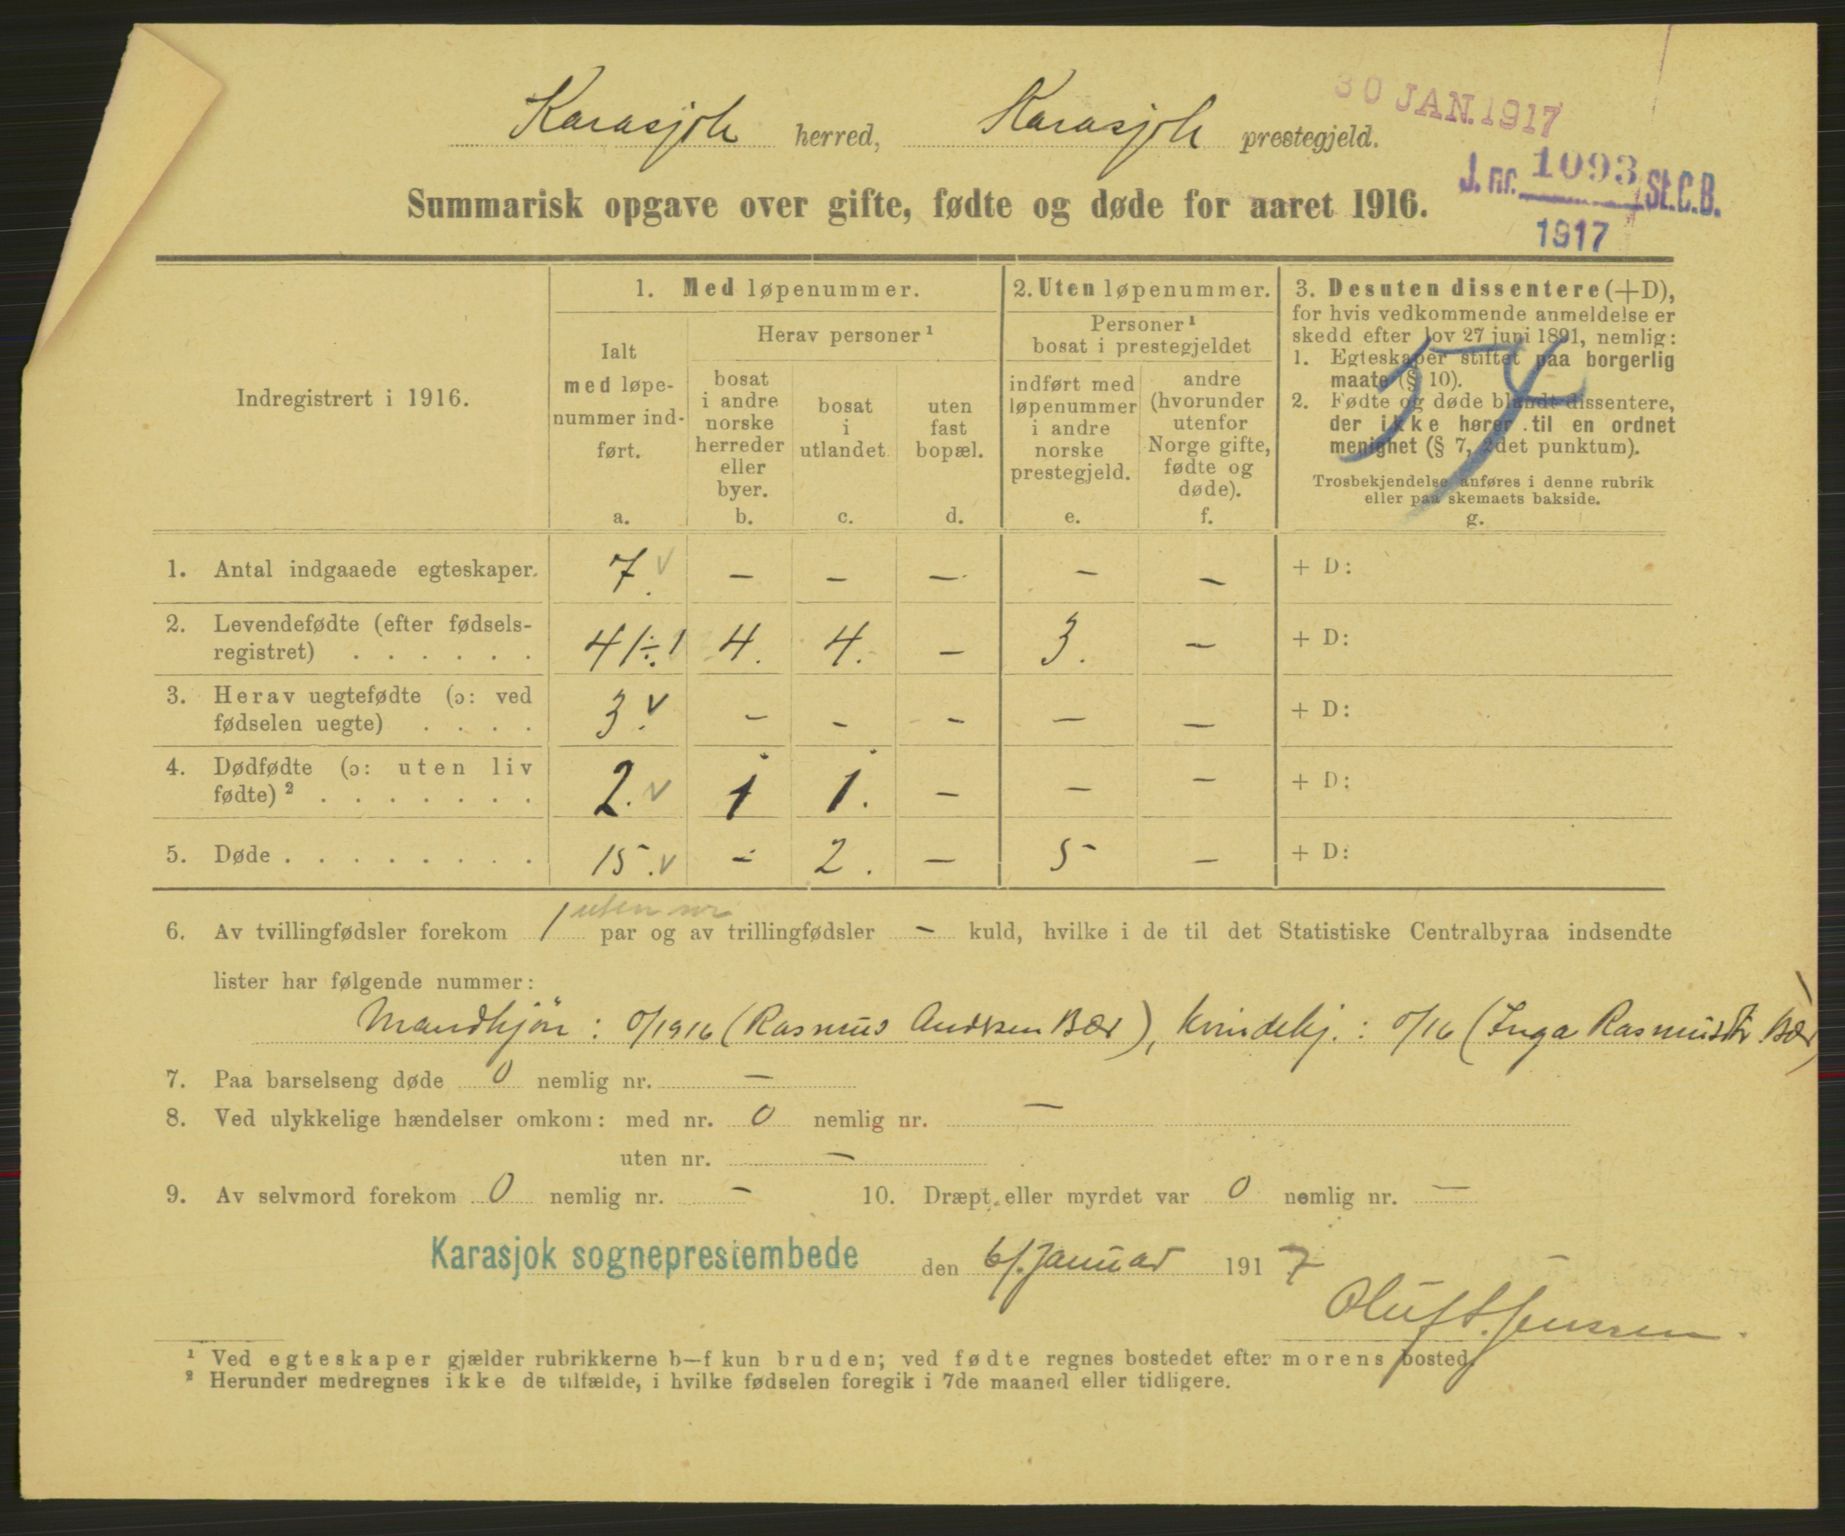 30 JAN. 1917
Karasjok herred, Karasjok prestegjeld.
J. nr. 1093 St. C. B.
1917
Summarisk opgave over gifte, fødte og døde for aaret 1916.
Indregistrert i 1916.
1. Med løpenummer.
Ialt
med løpe-
nummer ind-
ført.
a.
Herav personer¹
bosat
i andre
norske
herreder
eller
byer.
b.
bosat
i
utlandet
c.
uten
fast
bopæl.
d.
2. Uten løpenummer.
Personer¹
bosat i prestegjeldet
indført med
løpenummer
i andre
norske
prestegjeld.
e.
andre
(hvorunder
utenfor
Norge gifte,
fødte og
døde).
f.
3. Desuten dissentere (+D),
for hvis vedkommende anmeldelse er
skedd efter lov 27 juni 1891, nemlig:
1. Egteskaper stiftet paa borgerlig
maate (§ 10).
2. Fødte og døde blandt dissentere,
der ikke hører til en ordnet
menighet (§ 7, 2det punktum).
Trosbekjendelse anføres i denne rubrik
eller paa skemaets bakside.
g.
1. Antal indgaaede egteskaper. 7. v – – – – – + D:
2. Levendefødte (efter fødsels-
registret) . . . . . . 41 ÷ 1 4. 4. – 3. – + D:
3. Herav uegtefødte (ɔ: ved
fødselen uegte) . . . . 3. v – – – – – + D:
4. Dødfødte (ɔ: uten liv
fødte) ² . . . . . . . 2. v 1 1. – – – + D:
5. Døde . . . . . . . . 15. v – 2. – 5 – + D:
uten nr
6. Av tvillingfødsler forekom 1 par og av trillingfødsler – kuld, hvilke i de til det Statistiske Centralbyraa indsendte
lister har følgende nummer:
Mandkjön: 0/1916 (Rasmus Andersen Bær), Kvindekj.: 0/16 (Inga Rasmusdtr. Bær)
7. Paa barselseng døde 0 nemlig nr. –
8. Ved ulykkelige hændelser omkom: med nr. 0 nemlig nr. –
uten nr. –
9. Av selvmord forekom 0 nemlig nr. – 10. Dræpt eller myrdet var 0 nemlig nr. –
Karasjok sogneprestembede den 6/. Januar 1917
Oluf S. Jenssen.
¹ Ved egteskaper gjælder rubrikkerne b–f kun bruden; ved fødte regnes bostedet efter morens bosted.
² Herunder medregnes ikke de tilfælde, i hvilke fødselen foregik i 7de maaned eller tidligere.